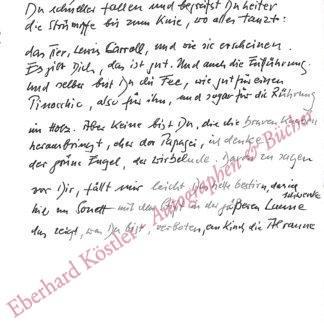 Du schneller fallen und begreifst Du heiter
die Strümpfe bis zum Knie, wo alles tanzt:
das Tier, Lewis Carroll, und wie sie erscheinen.
Es gibt Dich, das ist gut. Und auch die Entführung.
Und selber bist Du die Fee, wie gut für einen
Pinocchio, also für ihn, und sogar für die Rührung
im Holz. Aber keine bist Du, die die braven
herausbringt, aber der Papagei, ich denke
der grüne Engel, der wirbelnde. Davon zu sagen
vor Dir, fällt mir leicht
hie im Sonett mit dem in der größeren Laune
das zeigt, was Du bist, verboten, ein Kind, die Alraune
Eberhard Köstler - Autographen & Bücher